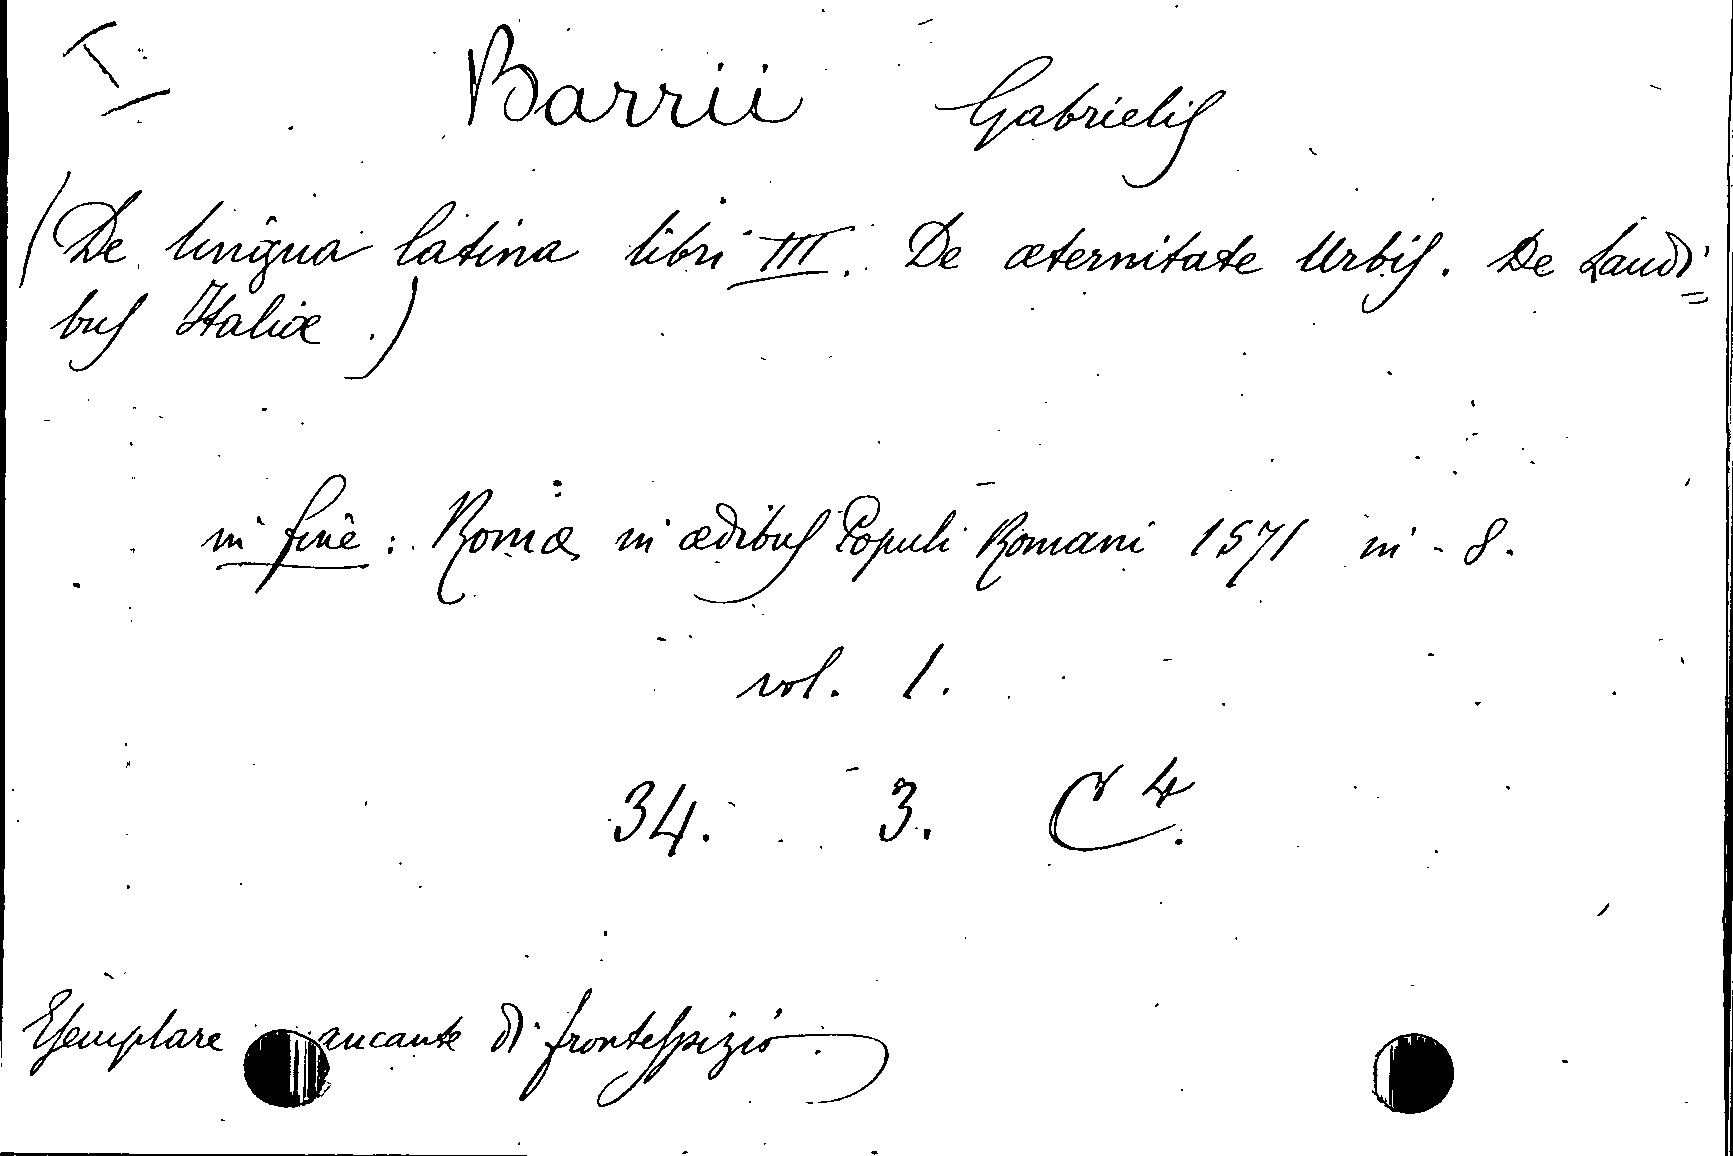 I
Barrii Gabrielis
(De lingua latina libri III. De æternitate Urbis. De Laudi=
bus Italiæ.)
in fine: Romæ in ædibus Populi Romani 1571 in-8.
vol. 1.
34. 3. C 4.
Esemplare mancante di frontespizio.